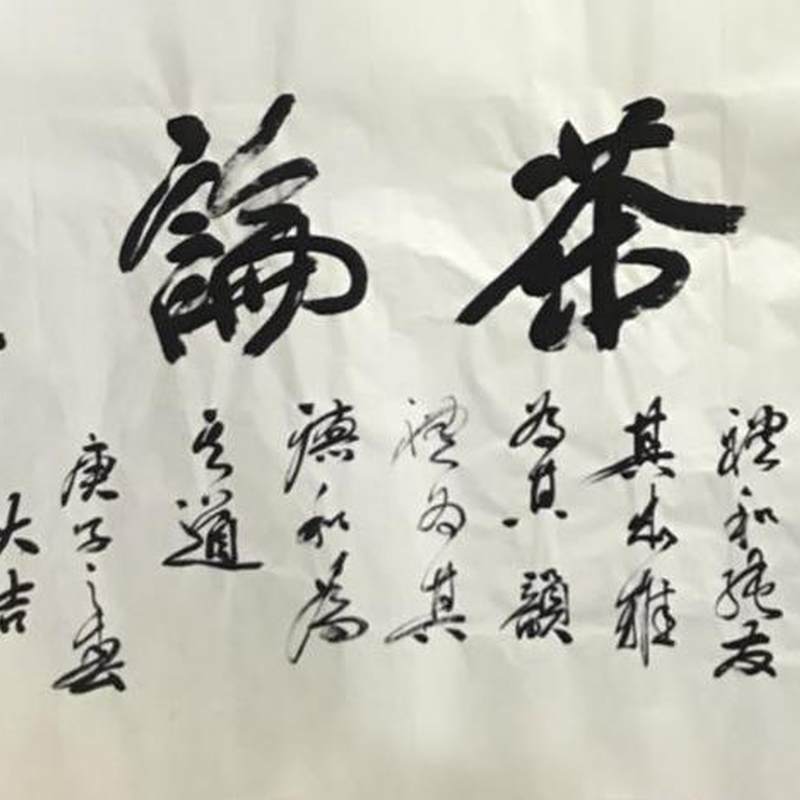 茶論
禮和
其
為其韻
禮為其
德和為
其道
庚子之春
大吉